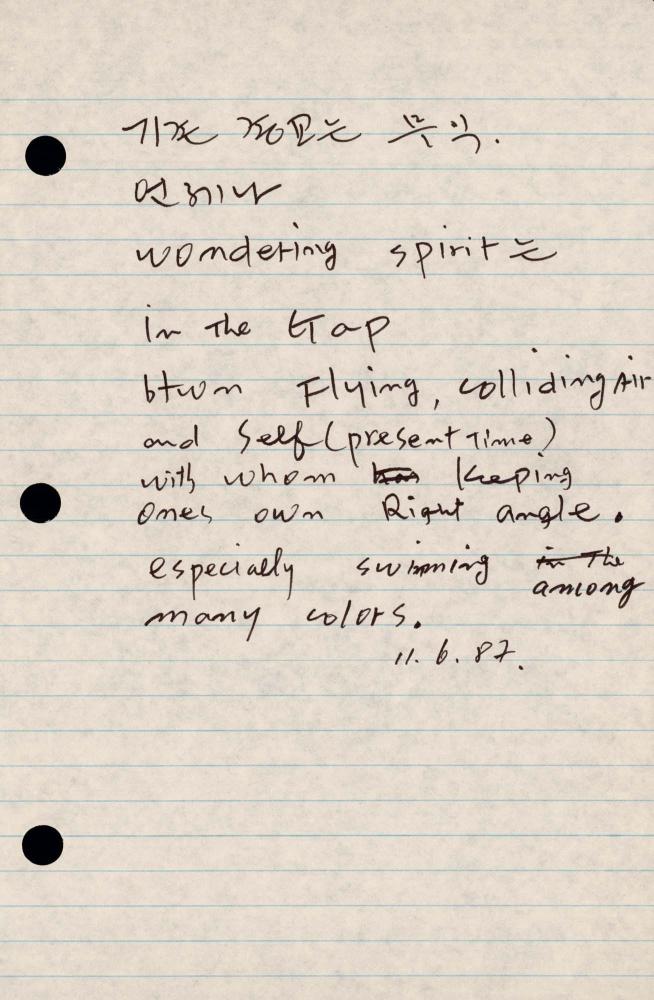 기존 장교는 묶익.
언제나
wondering spirit는
in The Gap
btwn Flying, colliding Air
and Self (present Time)
with whom Keeping
ones own Right angle.
especially swimming in The
among
many colors.
11. 6. 87.